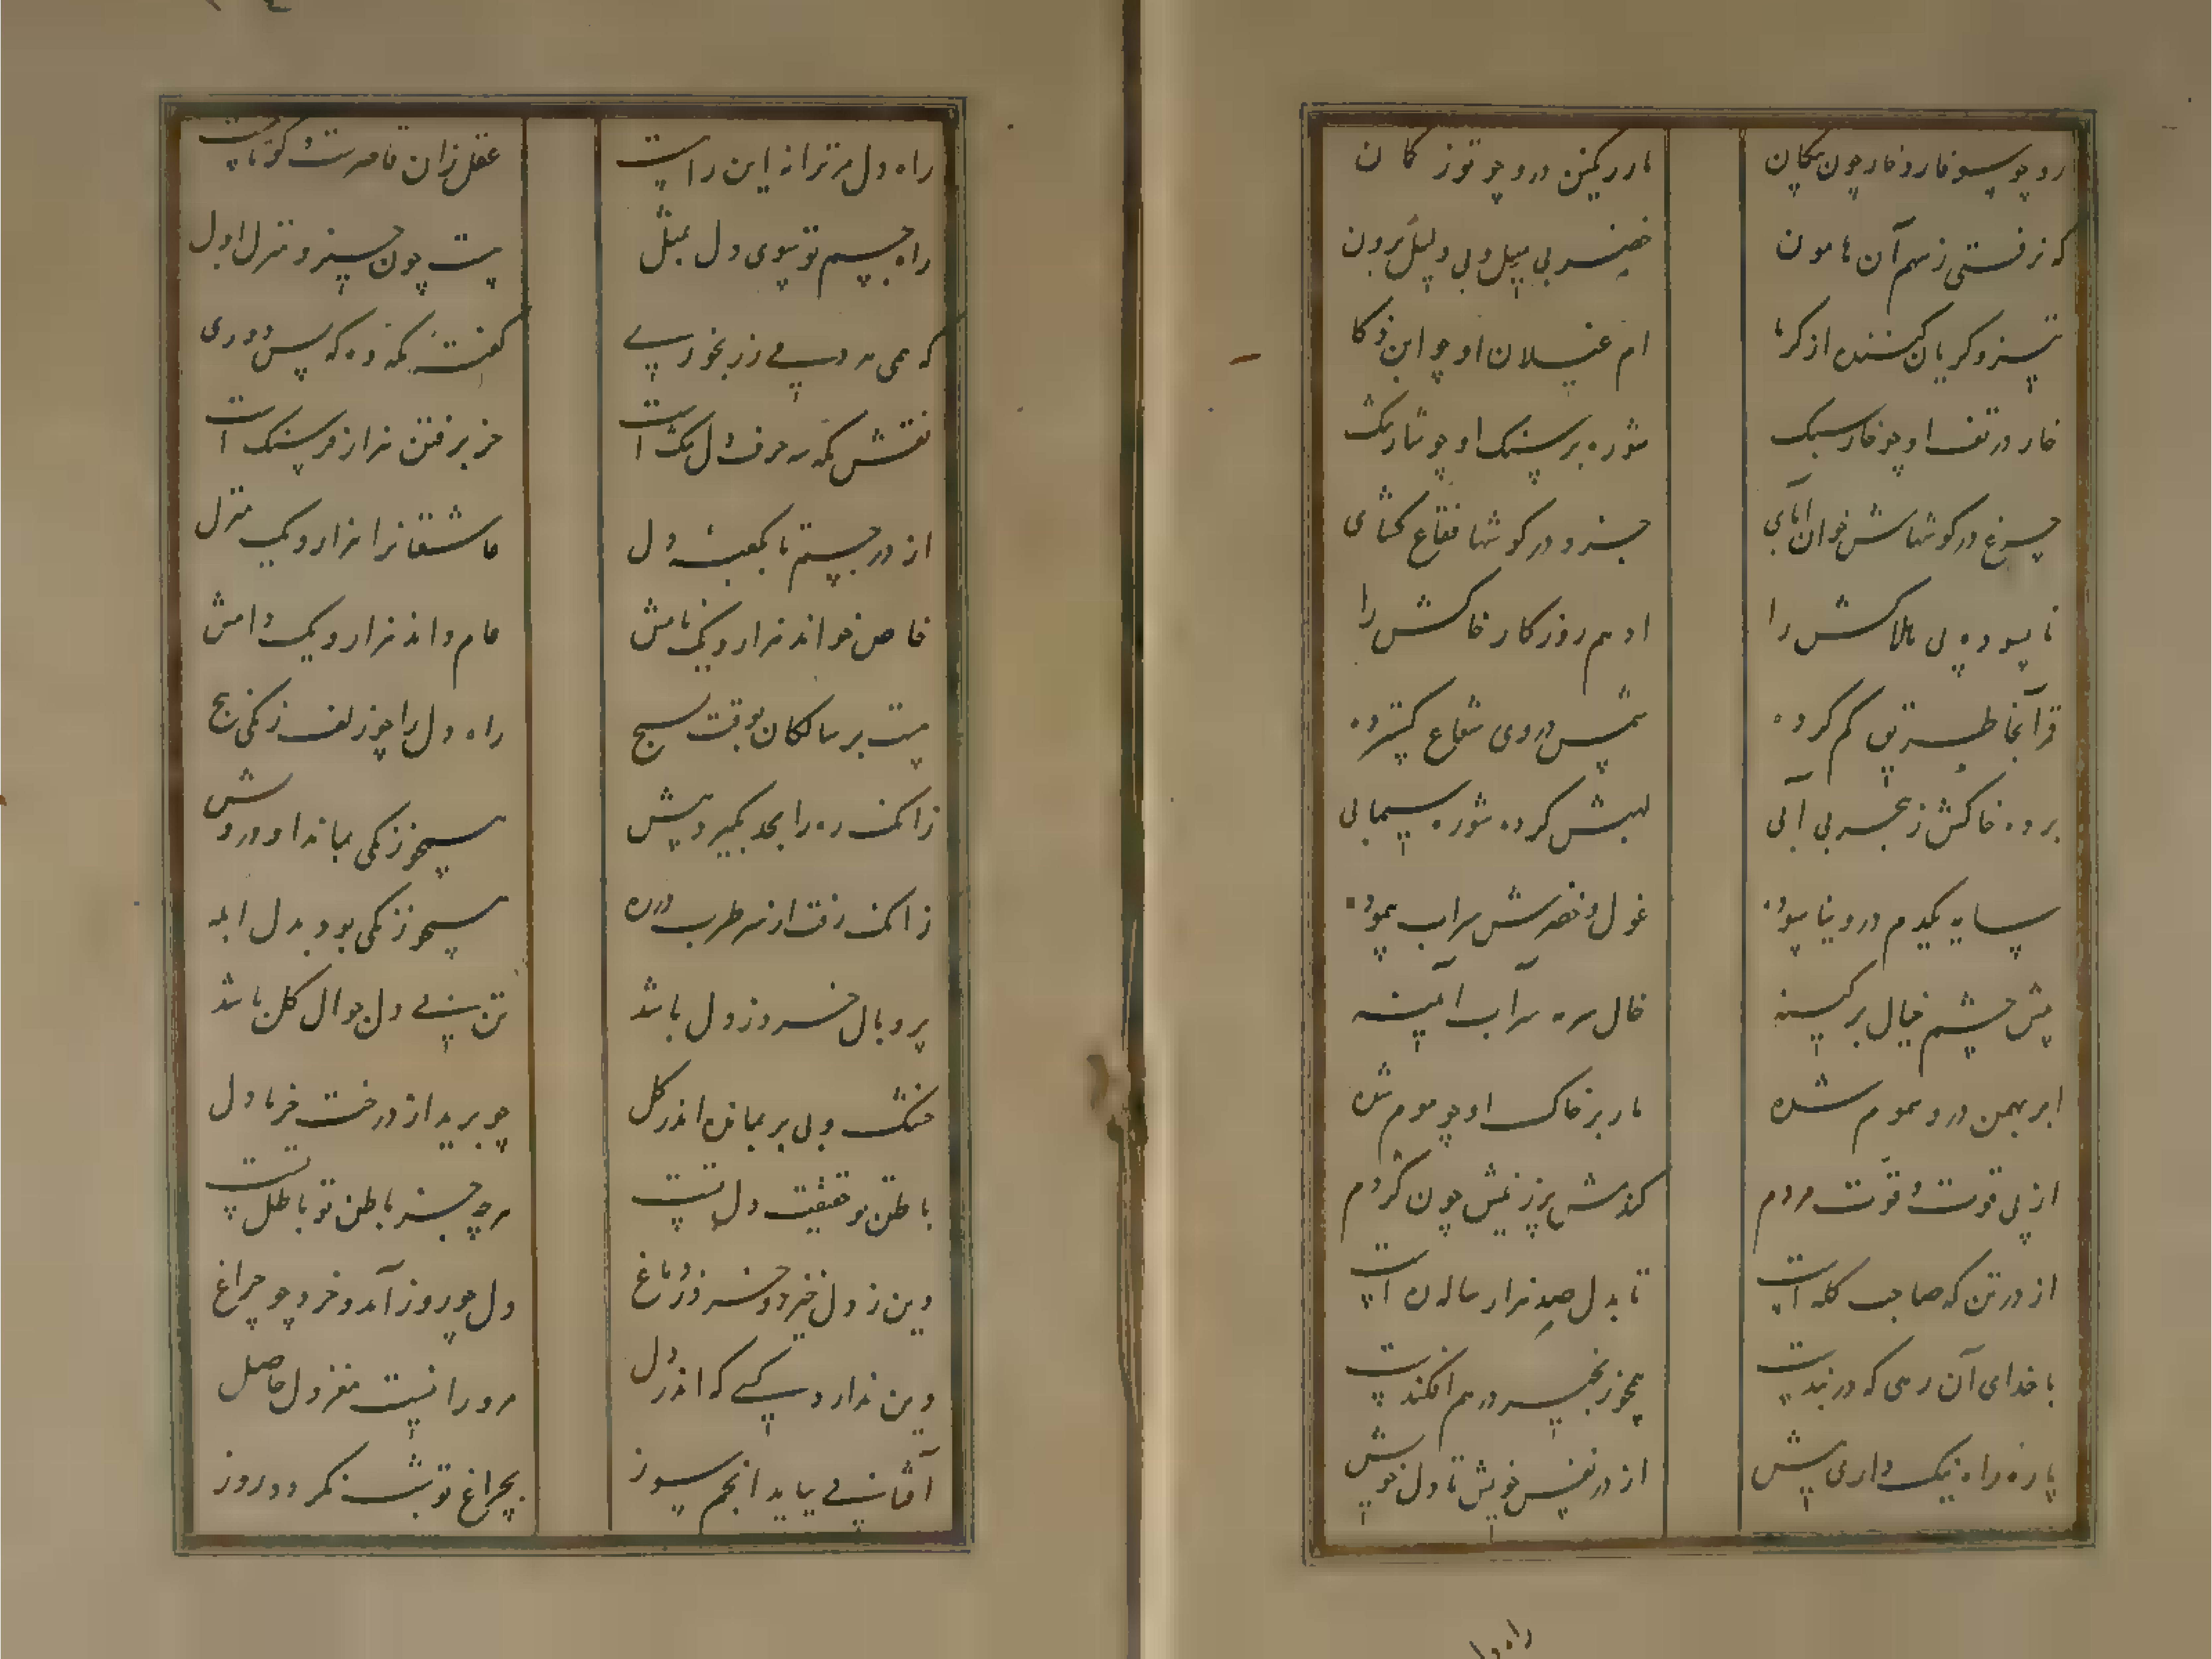 که نرفتی ز سهم آن هامون
خضر بی میل و بی دلیل برون
تیز و گریان کشنده از گرما
ام غیلان او چو ابن ذکا
خار در تف او چو خار سبک
شوره بر سنک او چو
چرغ در کوشهاش خوان آرای
جزو در کوشها فقاع کشای
نابسوده پی هلاکش را
او هم روزکار خاکش را
طریق کم کرده
شمس در وی شعاع کسترده
برده خاکش ز بی آبی
کرده شوره سیمابی
سایه یکدم درو نیاسوده
غول و خضرش سراب پیموده
پیش چشم خیال بر کینه
خال سره سراب آیینه
ابر بهمن درو سموم شده
مار بر خاک او چو موم شده
از پی قوت و قوت مردم
کندمش بر زمینش چون کژدم
از در تن که صاحب کله است
تا بدل صد هزار ساله ره است
با خدای آن رهی که در بندست
همچو زنجیر در هم افکندست
پاره راه نیک داری پیش
از در نفس خویش تا دل خویش
راه دل
راه دل مر ترا نه این راهست
عقل زان قاصرست کوتاهست
راه جسم تو سوی دل بمثل
هست چون جسر و منزل اول
که همی نه در پی رنجوری
گفت نکه ده که بس دوری
نقش که سه حرف دل یکست
جز برفتن هزار فرسنک است
از در جسم تا بکعبه دل
عاشقانرا هزار و یک منزل
خاص خواند هزار و یک نامش
عام داند هزار و یک دامش
هست بر سالکان بوقت بسیج
راه دل را چو زلف زنکی هیچ
زانک ره را بجد نکیرد پیش
همچو زنکی بماند او درویش
زانک رفت از سر طرب در ره
همچو زنکی بود بدل ابله
پر و بال خرد ز دل باشد
تن بی دل جوال کل باشد
خشک و بی بر بمانده اندر کل
چو برید از درخت خرما دل
باطن تو حقیقت دل تست
هرچه جز باطن تو باطل تست
دین ز دل خیزد و خرد ز دماغ
دل چو روز آمد و خرد چو چراغ
دین ندارد کسی که اندر دل
مر ورا نیست مغز دل حاصل
آفتابی بیاید انجم سوز
بچراغ تو شب نکردد روز